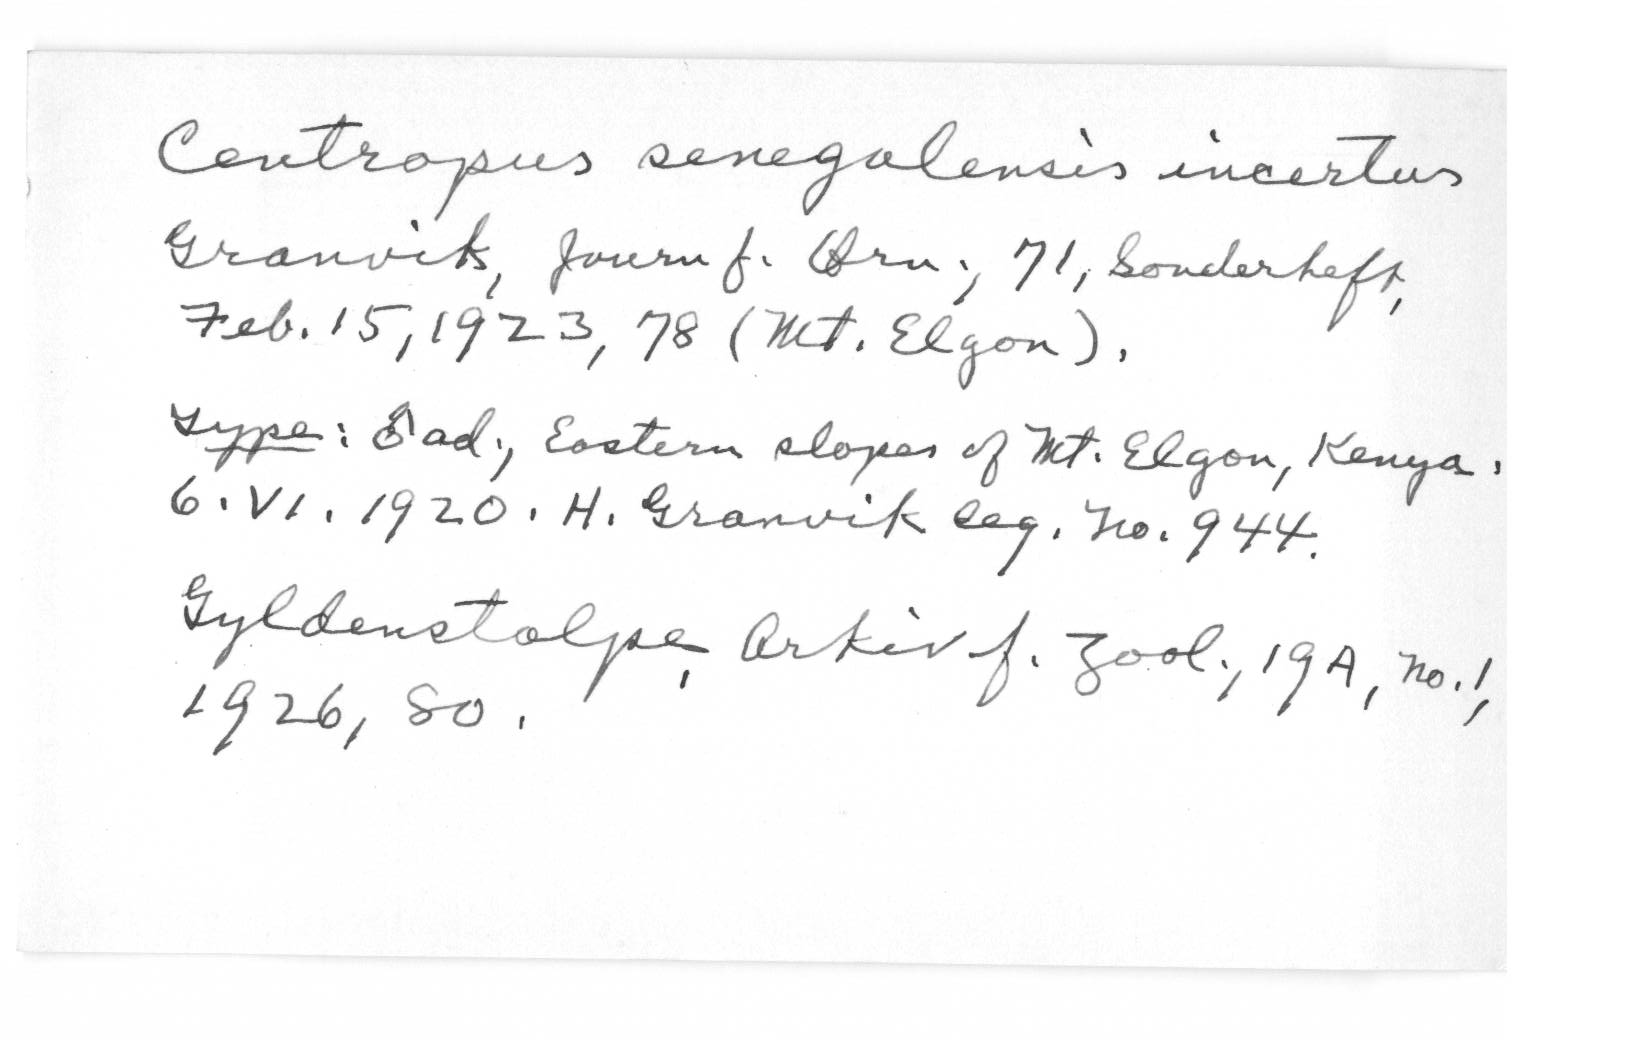 Centropus senegalensis incertus
Granvik, Journ f. Orn., 71, Sonderheft,
Feb. 15, 1923, 78 (Mt. Elgon).
Type: ♂ ad., Eastern slopes of Mt. Elgon, Kenya.
6. VI. 1920. H. Granvik leg. No. 944.
Gyldenstolpe, Arkiv f. Zool., 19A, no. 1,
1926, 80.